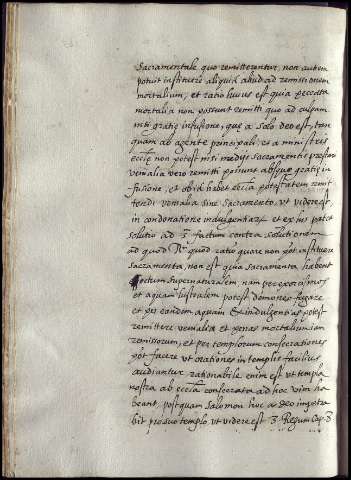 Sacramentale quo remitterentur, non autem
potuit instituere aliquid aliud ad remissionem
mortalium, et ratio huius est quia peccata
mortalia non possunt remitti quo ad culpam
nisi gratiæ infusione, quæ a solo deo est, tan
quam ab agente principali, et a ministris
ecclīe non potest nisi medijs sacramentis præstari
venialia vero remitti possunt absque gratiæ in
fusione, et obid habet ecclīa potestatem remit
tendi venialia sine sacramento, vt videre est
in condonatione indulgentiarꝫ et ex his patet
solutio ad 3 factum contra solutionem
ad quod Rr quod ratio quare non pōt instituere
sacramenta, non est quia sacramenta habent
effectum supernaturalem nam per exorcismos
et aquam lustralem potest demones fugare
et per eandem aquam & indulgentias potest
remittere venialia et penas mortalium iam
remissorum, et per templorum consecrationes
pōt facere vt orationes in templis facilius
audiantur rationabile enim est vt templa
nostra ab ecclīa consecrata ad hoc vim ha
beant, postquam salomon hoc a deo impetra
bit pro suo templo, vt videre est 3 Regum Cap. 8